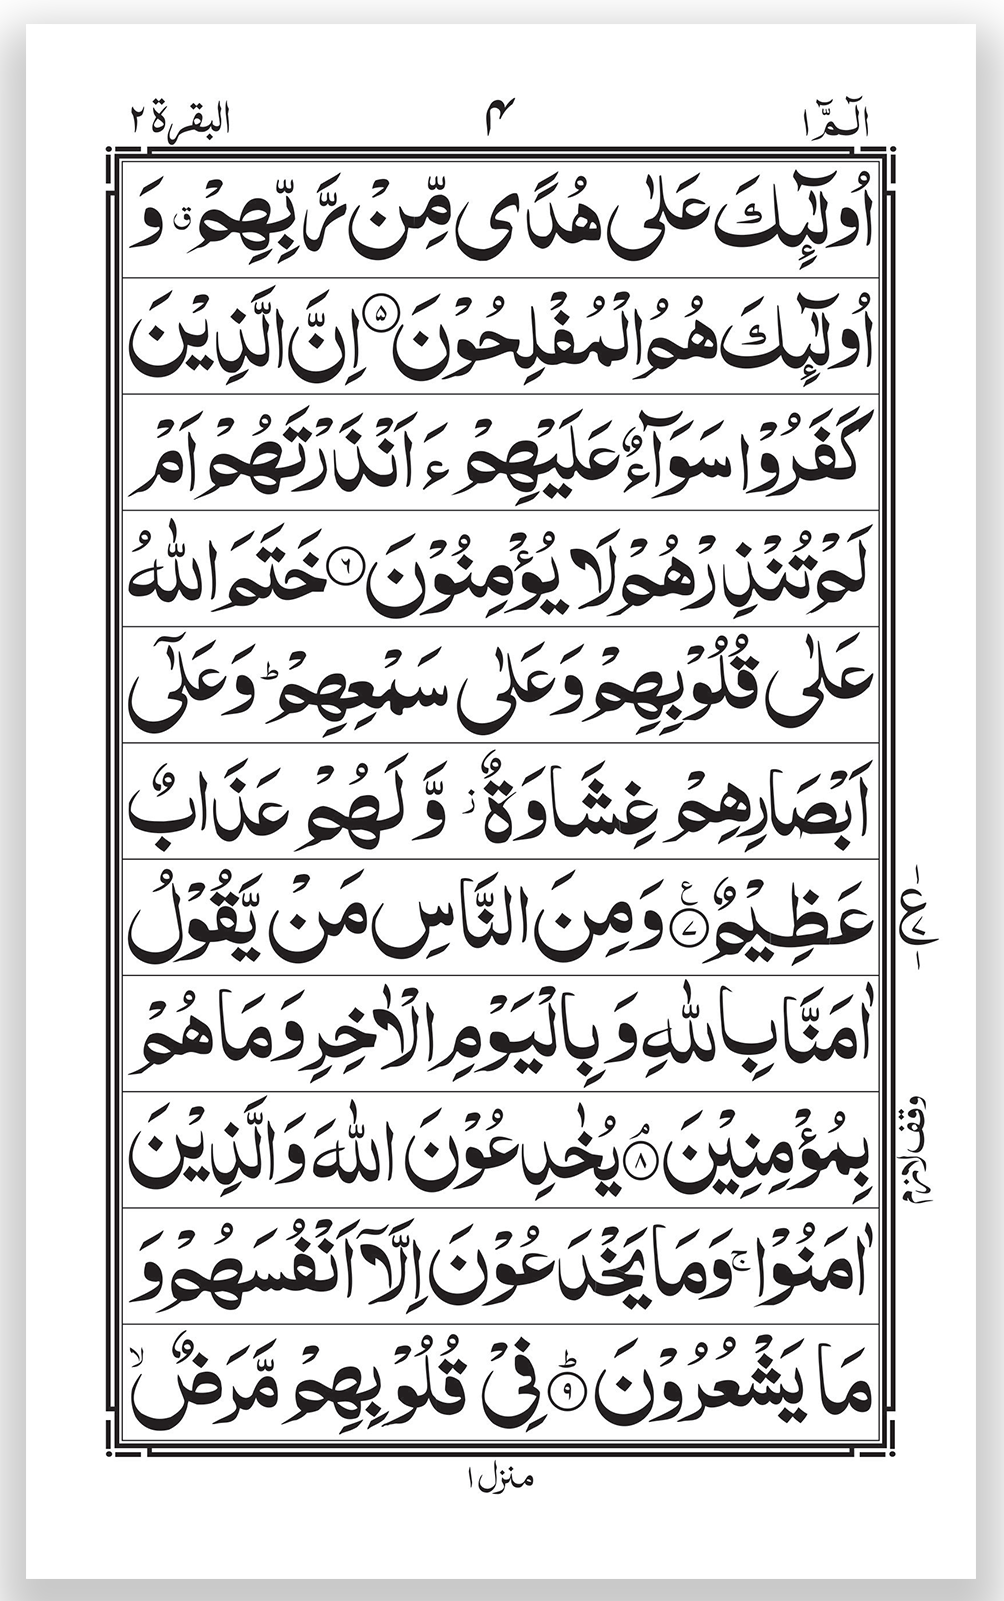 الٓمّٓ ۱ ۴ البقرۃ ۲
اُولٰٓئِكَ عَلٰى هُدًى مِّنْ رَّبِّهِمْ ۗ وَ
اُولٰٓئِكَ هُمُ الْمُفْلِحُوْنَ ۵ اِنَّ الَّذِيْنَ
كَفَرُوْا سَوَآءٌ عَلَيْهِمْ ءَاَنْذَرْتَهُمْ اَمْ
لَمْ تُنْذِرْهُمْ لَا يُؤْمِنُوْنَ ۶ خَتَمَ اللّٰهُ
عَلٰى قُلُوْبِهِمْ وَعَلٰى سَمْعِهِمْ ؕ وَعَلٰٓى
اَبْصَارِهِمْ غِشَاوَةٌ ز وَّ لَهُمْ عَذَابٌ
عَظِيْمٌ ۷ ع وَمِنَ النَّاسِ مَنْ يَّقُوْلُ
اٰمَنَّا بِاللّٰهِ وَ بِالْيَوْمِ الْاٰخِرِ وَمَا هُمْ
بِمُؤْمِنِيْنَ ۸ م يُخٰدِعُوْنَ اللّٰهَ وَالَّذِيْنَ
اٰمَنُوْا ۚ وَمَا يَخْدَعُوْنَ اِلَّاۤ اَنْفُسَهُمْ وَ
مَا يَشْعُرُوْنَ ۹ ؕ فِيْ قُلُوْبِهِمْ مَّرَضٌ ۙ
ع
۷
وقف لازم
منزل ۱